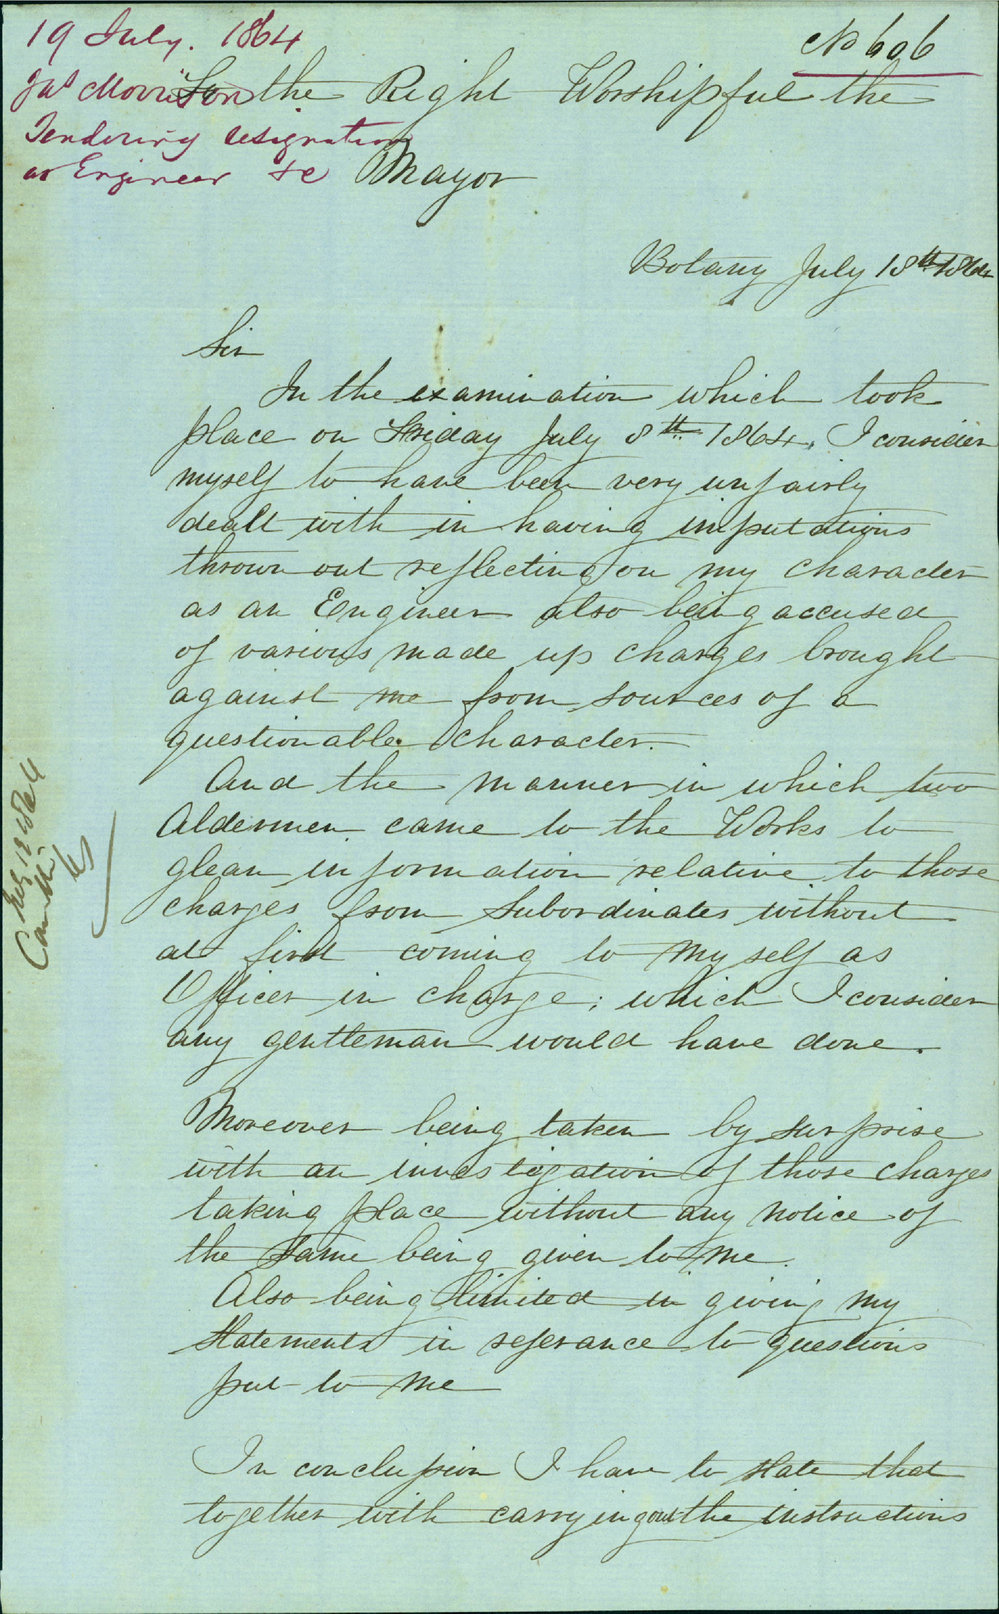 19 July. 1864
No 606
Jas Morrison
Tendering resignation
as Engineer &c
To the Right Worshipful the
Mayor
Botany July 18th 1864
Sir
In the examination which took
place on Friday July 8th 1864, I consider
myself to have been very unfairly
dealt with in having imputations
thrown out reflecting on my character
as an Engineer also being accused
of various made up charges brought
against me from sources of a
questionable character.
And the manner in which two
Aldermen came to the Works to
glean information relative to those
charges from subordinates without
at first coming to myself as
Officer in charge; which I consider
any gentleman would have done.
Moreover being taken by surprise
with an investigation of those charges
taking place without any notice of
the same being given to me.
Also being limited in giving my
statements in referance to questions
put to me
In conclusion I have to state that
together with carrying out the instructions